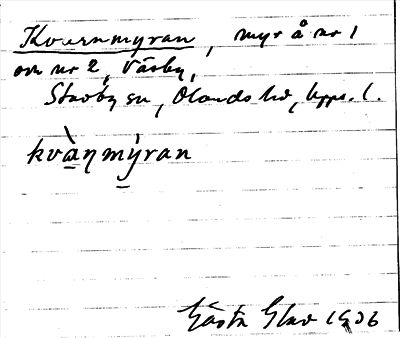 Kvarnmyran, myr å nr 1
och nr 2, Väsby,
Stavby sn, Olands hd, Upps. l.
kvàṇmýran
Gösta Elao 1936